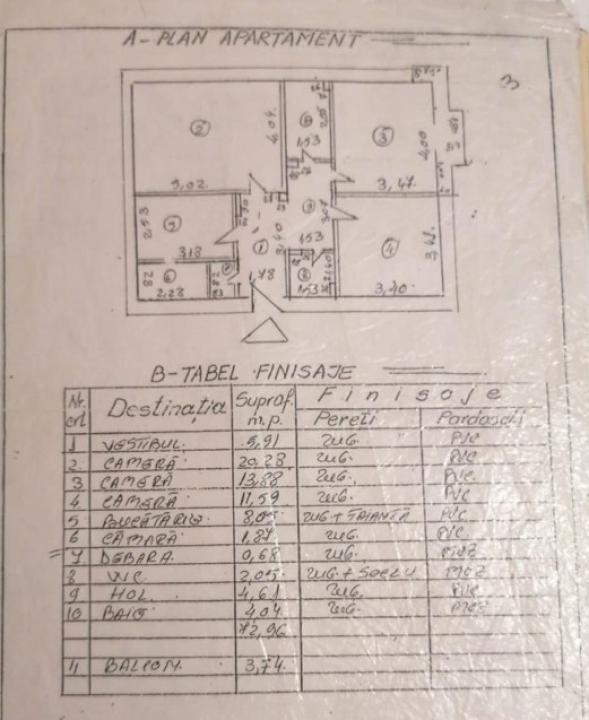 A-PLAN APARTAMENT
3
2
4,04
5,02
2,05
1,53
3
4,00
3,47
2,53
3,18
1
3,40
1,78
9
3,07
1,53
4
3,42
3,40
6
,82
2,28
,82
8
1,40
1,53
B-TABEL FINISAJE
Nr. crt Destinația Supraf. m.p. Finisaje
Pereți Pardoseli
1 VESTIBUL. 5,91 zug. PVC
2 CAMERĂ 20,28 zug. PVC
3 CAMERĂ 13,88 zug. PVC
4 CAMERĂ 11,59 zug. PVC
5 BUCĂTĂRIE 8,05 zug + FAIANȚĂ PVC
6 CĂMARĂ 1,87 zug. PVC
7 DEBARA. 0,68 zug. MOZ
8 WC. 2,05 zug + SOCLU MOZ
9 HOL. 4,61 zug. PVC
10 BAIE 4,04 zug. MOZ
72,96
11 BALCON. 3,74